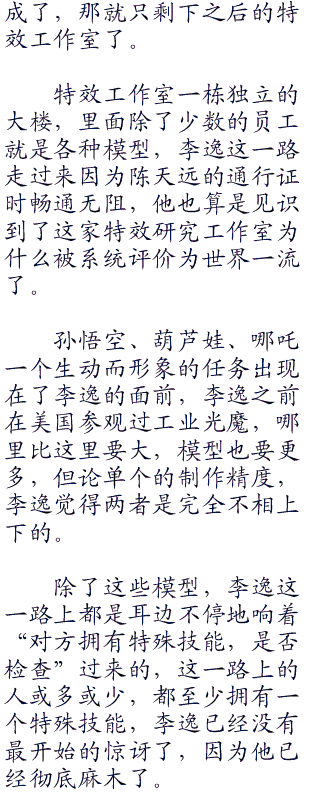 成了，那就只剩下之后的特
效工作室了。
特效工作室一栋独立的
大楼，里面除了少数的员工
就是各种模型，李逸这一路
走过来因为陈天远的通行证
时畅通无阻，他也算是见识
到了这家特效研究工作室为
什么被系统评价为世界一流
了。
孙悟空、葫芦娃、哪吒
一个生动而形象的任务出现
在了李逸的面前，李逸之前
在美国参观过工业光魔，哪
里比这里要大，模型也要更
多，但论单个的制作精度，
李逸觉得两者是完全不相上
下的。
除了这些模型，李逸这
一路上都是耳边不停地响着
“对方拥有特殊技能，是否
检查”过来的，这一路上的
人或多或少，都至少拥有一
个特殊技能，李逸已经没有
最开始的惊讶了，因为他已
经彻底麻木了。